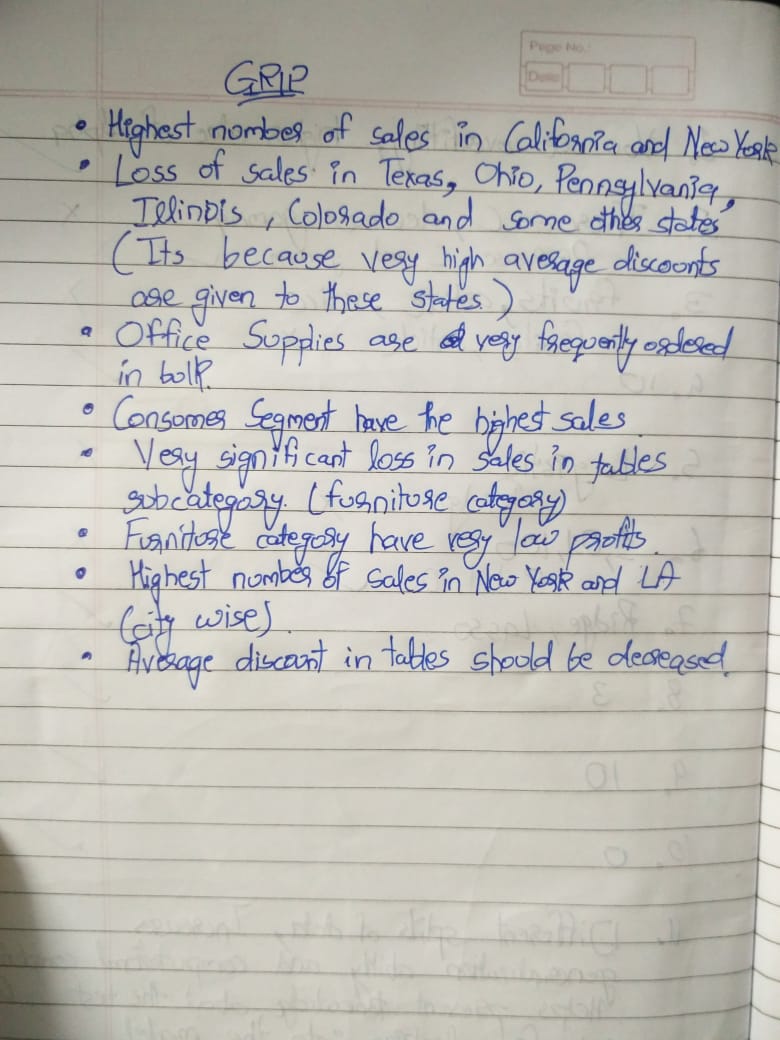 Page No.:
Date
GRIP
• Highest number of sales in California and New York
• Loss of sales in Texas, Ohio, Pennsylvania,
Illinois, Colorado and some other states
(Its because very high average discounts
are given to these states.)
• Office Supplies are very frequently ordered
in bulk.
• Consumer Segment have the highest sales
• Very significant loss in sales in tables
subcategory. (furniture category)
• Furniture category have very low profits.
• Highest number of sales in New York and LA
(city wise).
• Average discount in tables should be decreased.